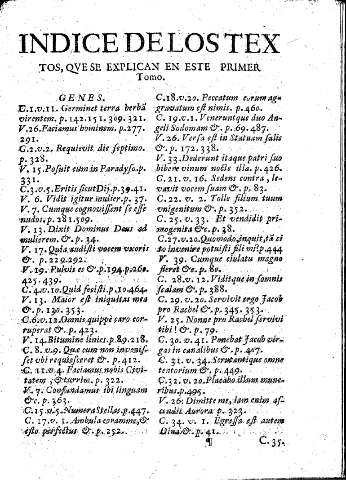 INDICE DE LOS TEX
TOS, QVE SE EXPLICAN EN ESTE PRIMER
Tomo.
GENES.
C.1.v.11. Germinet terra herbā
virentem. p.142.151.309.321.
V.26. Faciamus hominem. p.277.
291.
C.2.v.2. Requievit die septimo.
p.328.
V.15. Posuit eum in Paradyso. p.
331.
C.3.v.5. Eritis sicut Dij. p.39.41.
V. 6. Vidit igitur mulier. p.37.
V.7. Cumque cognovissent se esse
nudos, p.281.509.
V.13. Dixit Dominus Deus ad
mulierem. & p.34.
V.17. Quia audisti vocem uxoris
& p.229.292.
V.19. Pulvis es & p.194.p.260.
425.439.
C.4.v.10. Quid fecisti. p.10.464.
V.13. Maior est iniquitas mea
& p.130.353.
C.6.v.12. Omnis quippè caro cor-
ruperat & p.423.
V.14. Bitumine linies. p.89.218.
C.8.v.9. Quæ cum non invenis-
set vbi requiesceret & p.412.
C.11.v.4. Faciamus nobis Civi-
tatem, & turrim. p.322.
V.7. Confundamus ibi linguam
&c. p.363.
C.15.v.5. Numera stellas. p.447.
C.17.v.1. Ambula coram me, &
esto perfectus & p.252.
C.18.v.20. Peccatum eorum ag-
gravatum est nimis. p.460.
C.19.v.1. Veneruntque duo An-
geli Sodomam & p.69.487.
V.26. Versa est in Statuam salis
& p.172.338.
V.33. Dederunt itaque patri suo
bibere vinum nocte illa. p.426.
C.21.v.16. Sedens contra, le-
vavit vocem suam & p.83.
C.22.v.2. Tolle filium tuum
vnigenitum & p.352.
C.25.v.33. Et vendidit pri-
mogenita & p.38.
C.27.v.20. Quomodo, inquit, tā ci
to invenire potuisti fili mi? p.444
V.39. Cumque eiulatu magno
fleret & p.80.
C.28.v.12. Viditque in somnis
scalam & p.388.
C.29.v.20. Servivit ergo Jacob
pro Rachel & p.345.353.
V.25. Nonne pro Rachel servivi
tibi? & p.79.
C.30.v.41. Ponebat Jacob vir-
gas in canalibus & p.407.
C.31.v.34. Scrutantique omne
tentorium & p.449.
C.32.v.20. Placabo illum mune-
ribus. p.495.
V.26. Dimitte me, iam enim as-
cendit Aurora p.323.
C.34.v.1. Egressa est autem
Dina & p.41.
¶ C.35.